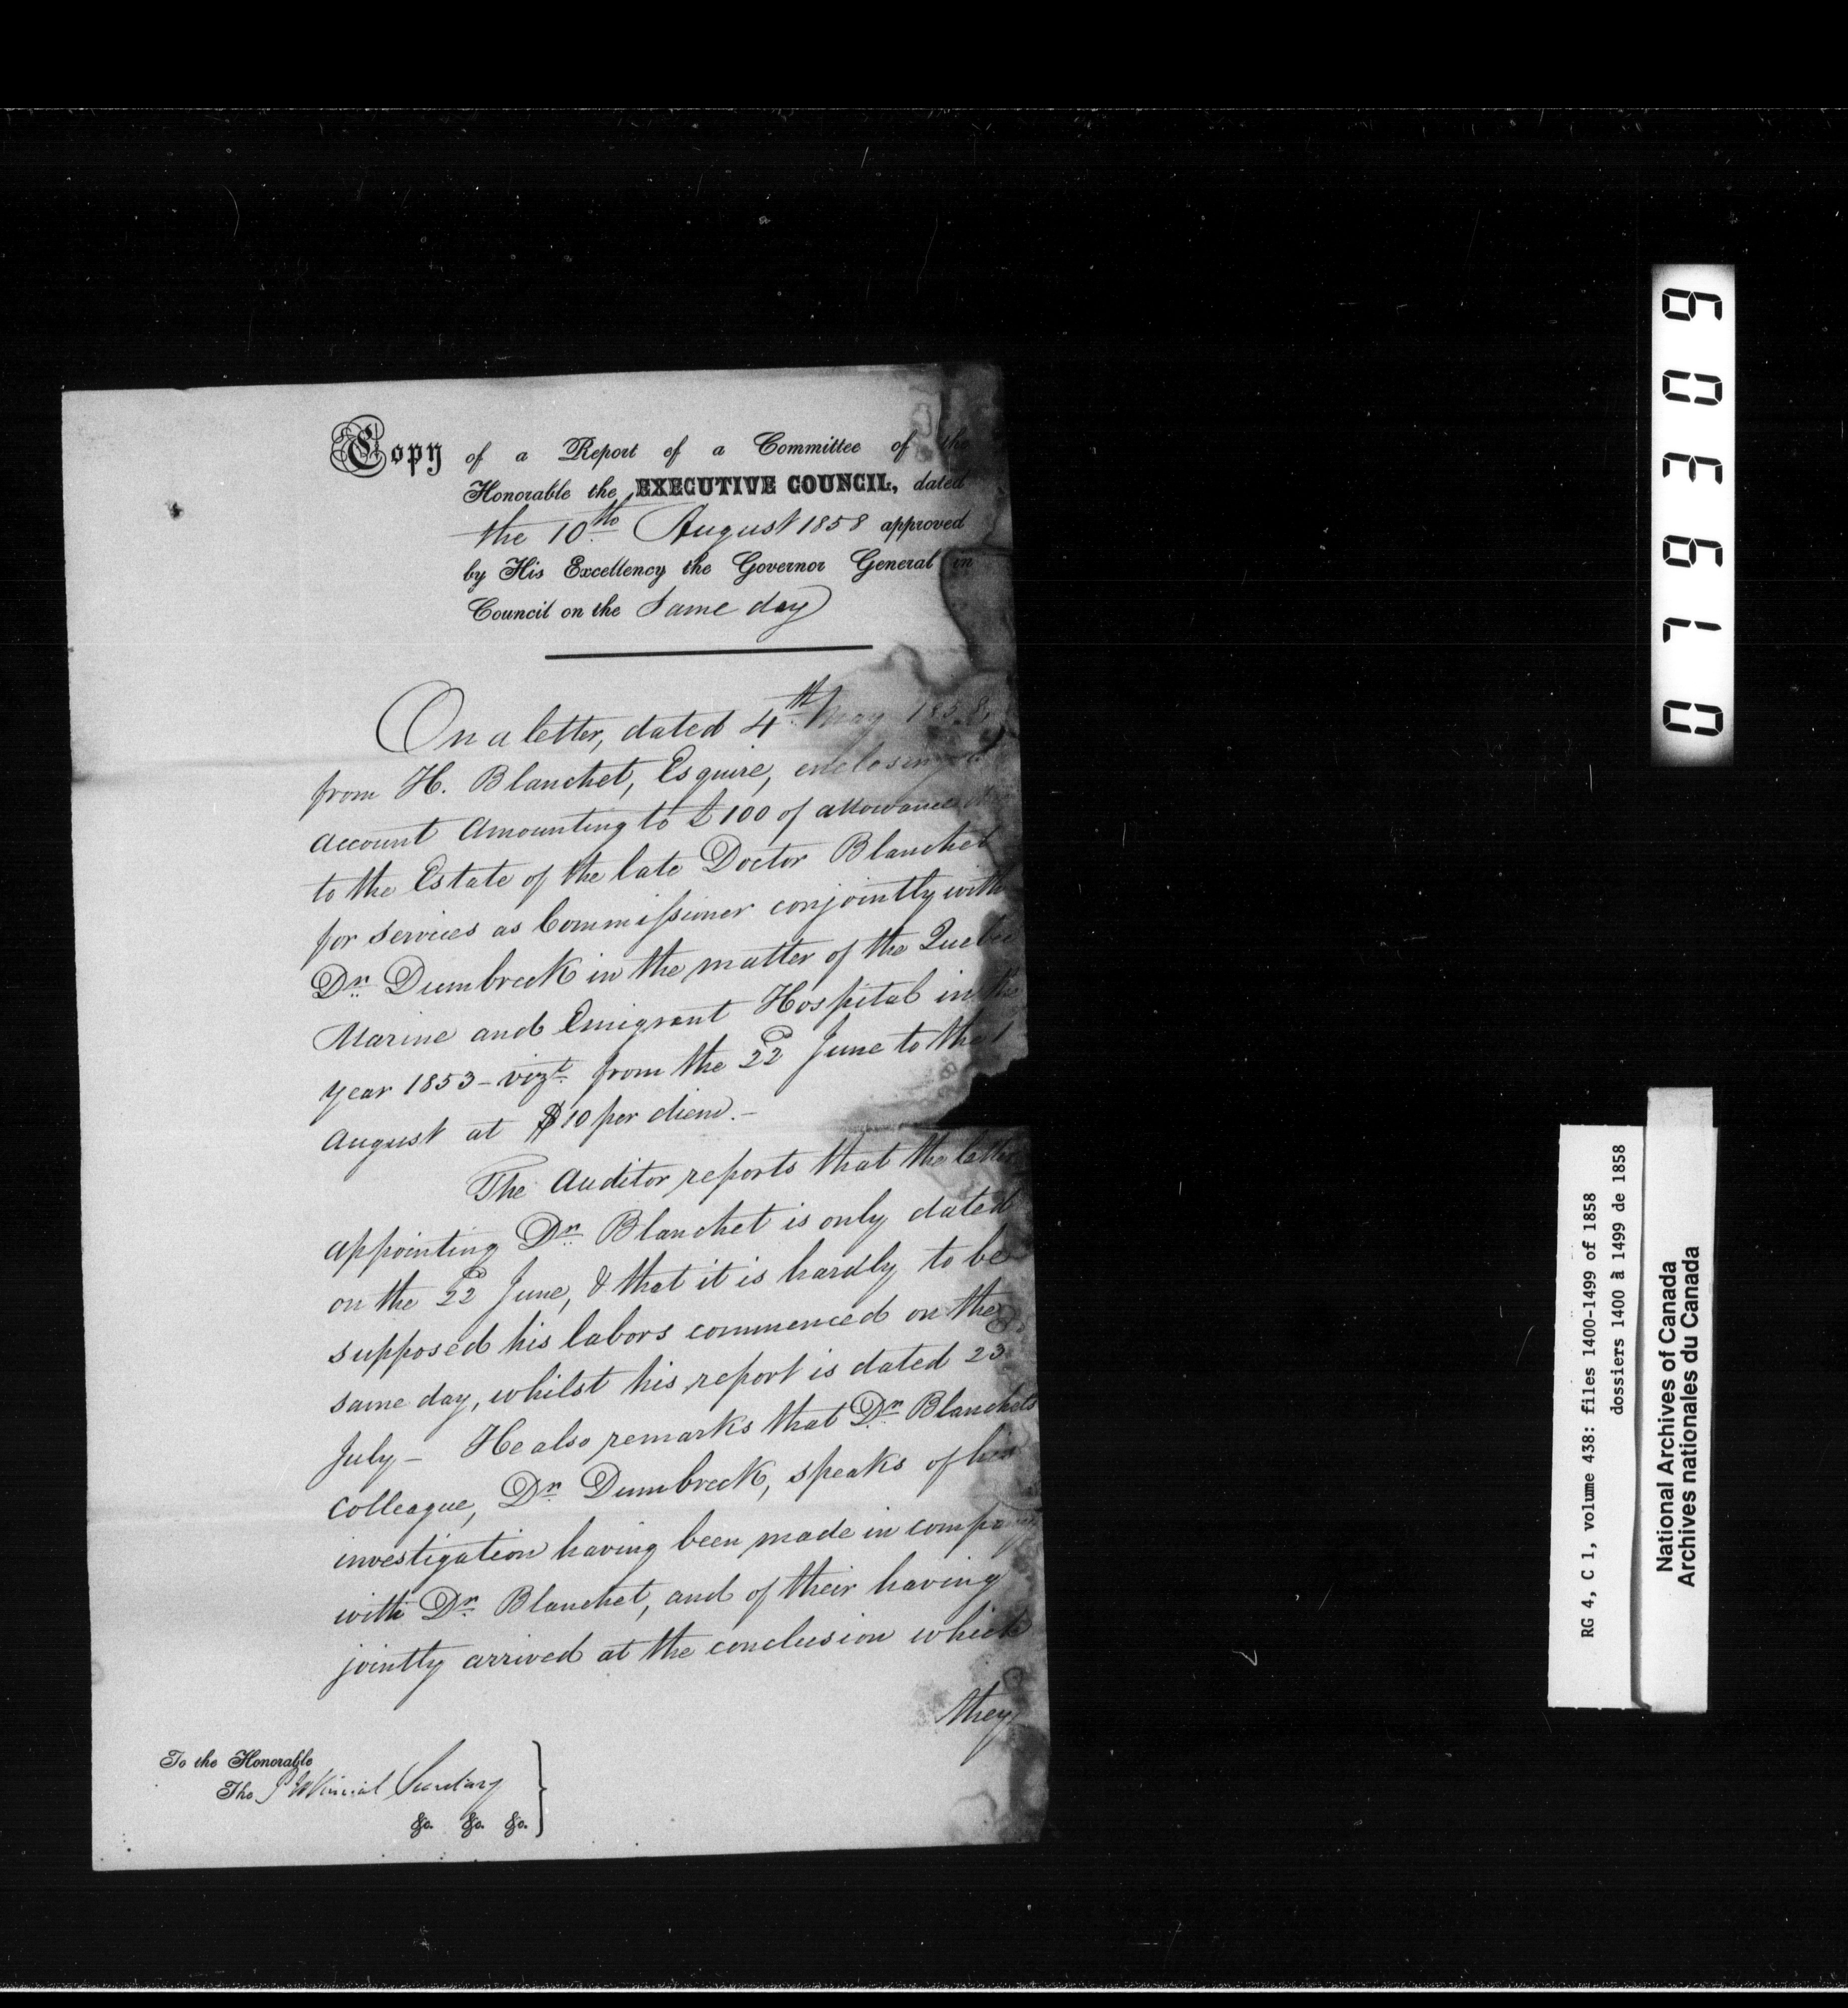 Copy of a Report of a Committee of the
Honorable the EXECUTIVE COUNCIL, dated
the 10th August 1858 approved
by His Excellency the Governor General in
Council on the Same day
On a letter, dated 4th May 1858,
from H. Blanchet, Esquire, enclosing
account amounting to £100 of allowance
to the Estate of the late Doctor Blanchet
for services as Commissioner conjointly with
Dr. Dumbreck in the matter of the Quebec
Marine and Emigrant Hospital in the
year 1853 - vizt. from the 22d June to the 1
August at $10 per diem. -
The Auditor reports that the letter
appointing Dr. Blanchet is only dated
on the 22d June, & that it is hardly to be
supposed his labors commenced on the
same day, whilst his report is dated 23
July - He also remarks that Dr. Blanchets
colleague, Dr. Dumbreck, speaks of his
investigation having been made in company
with Dr. Blanchet, and of their having
jointly arrived at the conclusion which
they
To the Honorable
The Provincial Secretary
&c. &c. &c.
019309
RG 4, C 1, volume 438: files 1400-1499 of 1858
dossiers 1400 à 1499 de 1858
National Archives of Canada
Archives nationales du Canada